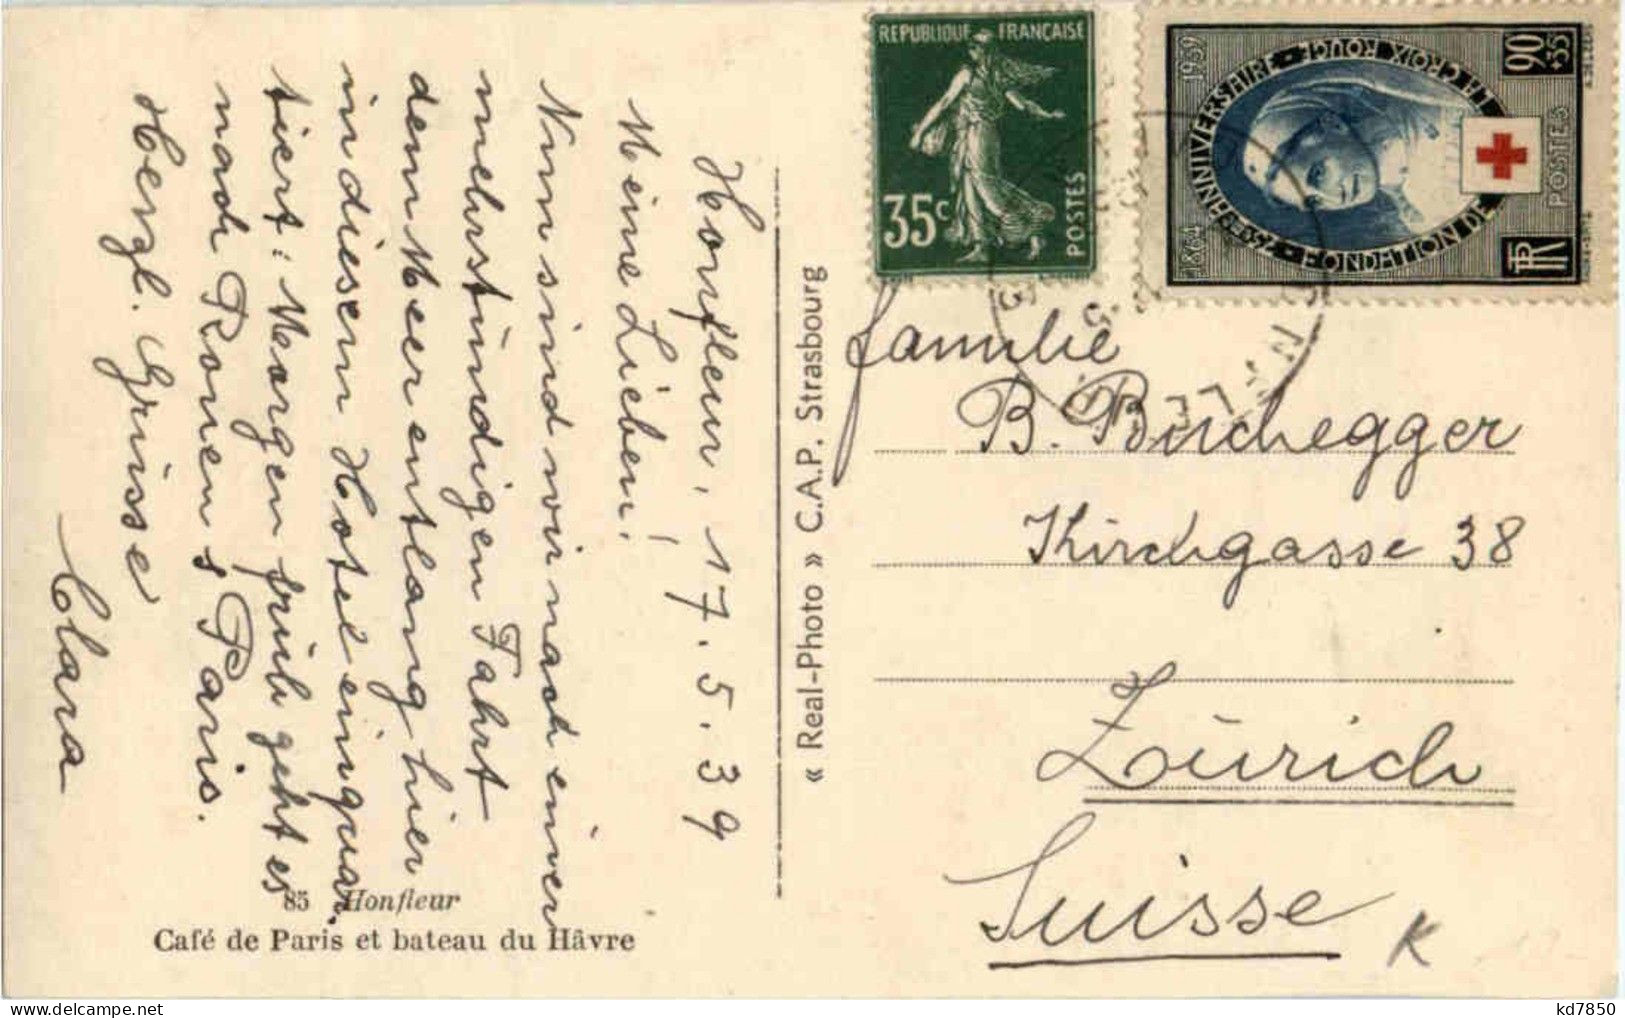 Honfleur, 17.5.39
Meine Lieben!
Nun sind wir nach einer
mehrstündigen Fahrt
dem Meer entlang hier
in diesem Hotel einquar
tiert. Morgen früh geht es
nach Rouen & Paris.
Herzl. Grüsse
Clara
85 Honfleur
Café de Paris et bateau du Hâvre
« Real-Photo » C.A.P. Strasbourg
REPUBLIQUE FRANÇAISE
35c
POSTES
1864 1939
75ème ANNIVERSAIRE - FONDATION DE LA CROIX ROUGE
90
+35
POSTES
RF
HONFLEUR
Familie
B. Buchegger
Kirchgasse 38
Zürich
Suisse
K
kd7850